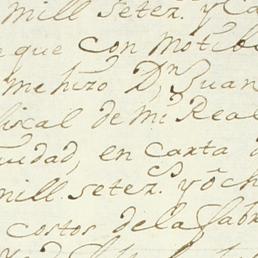 mill setez.ˢ y Ca
que con motibo
me hizo Dⁿ Juan
fiscal de mi Real
en carta
mill. setez.ˢ y och
costos de la fabr